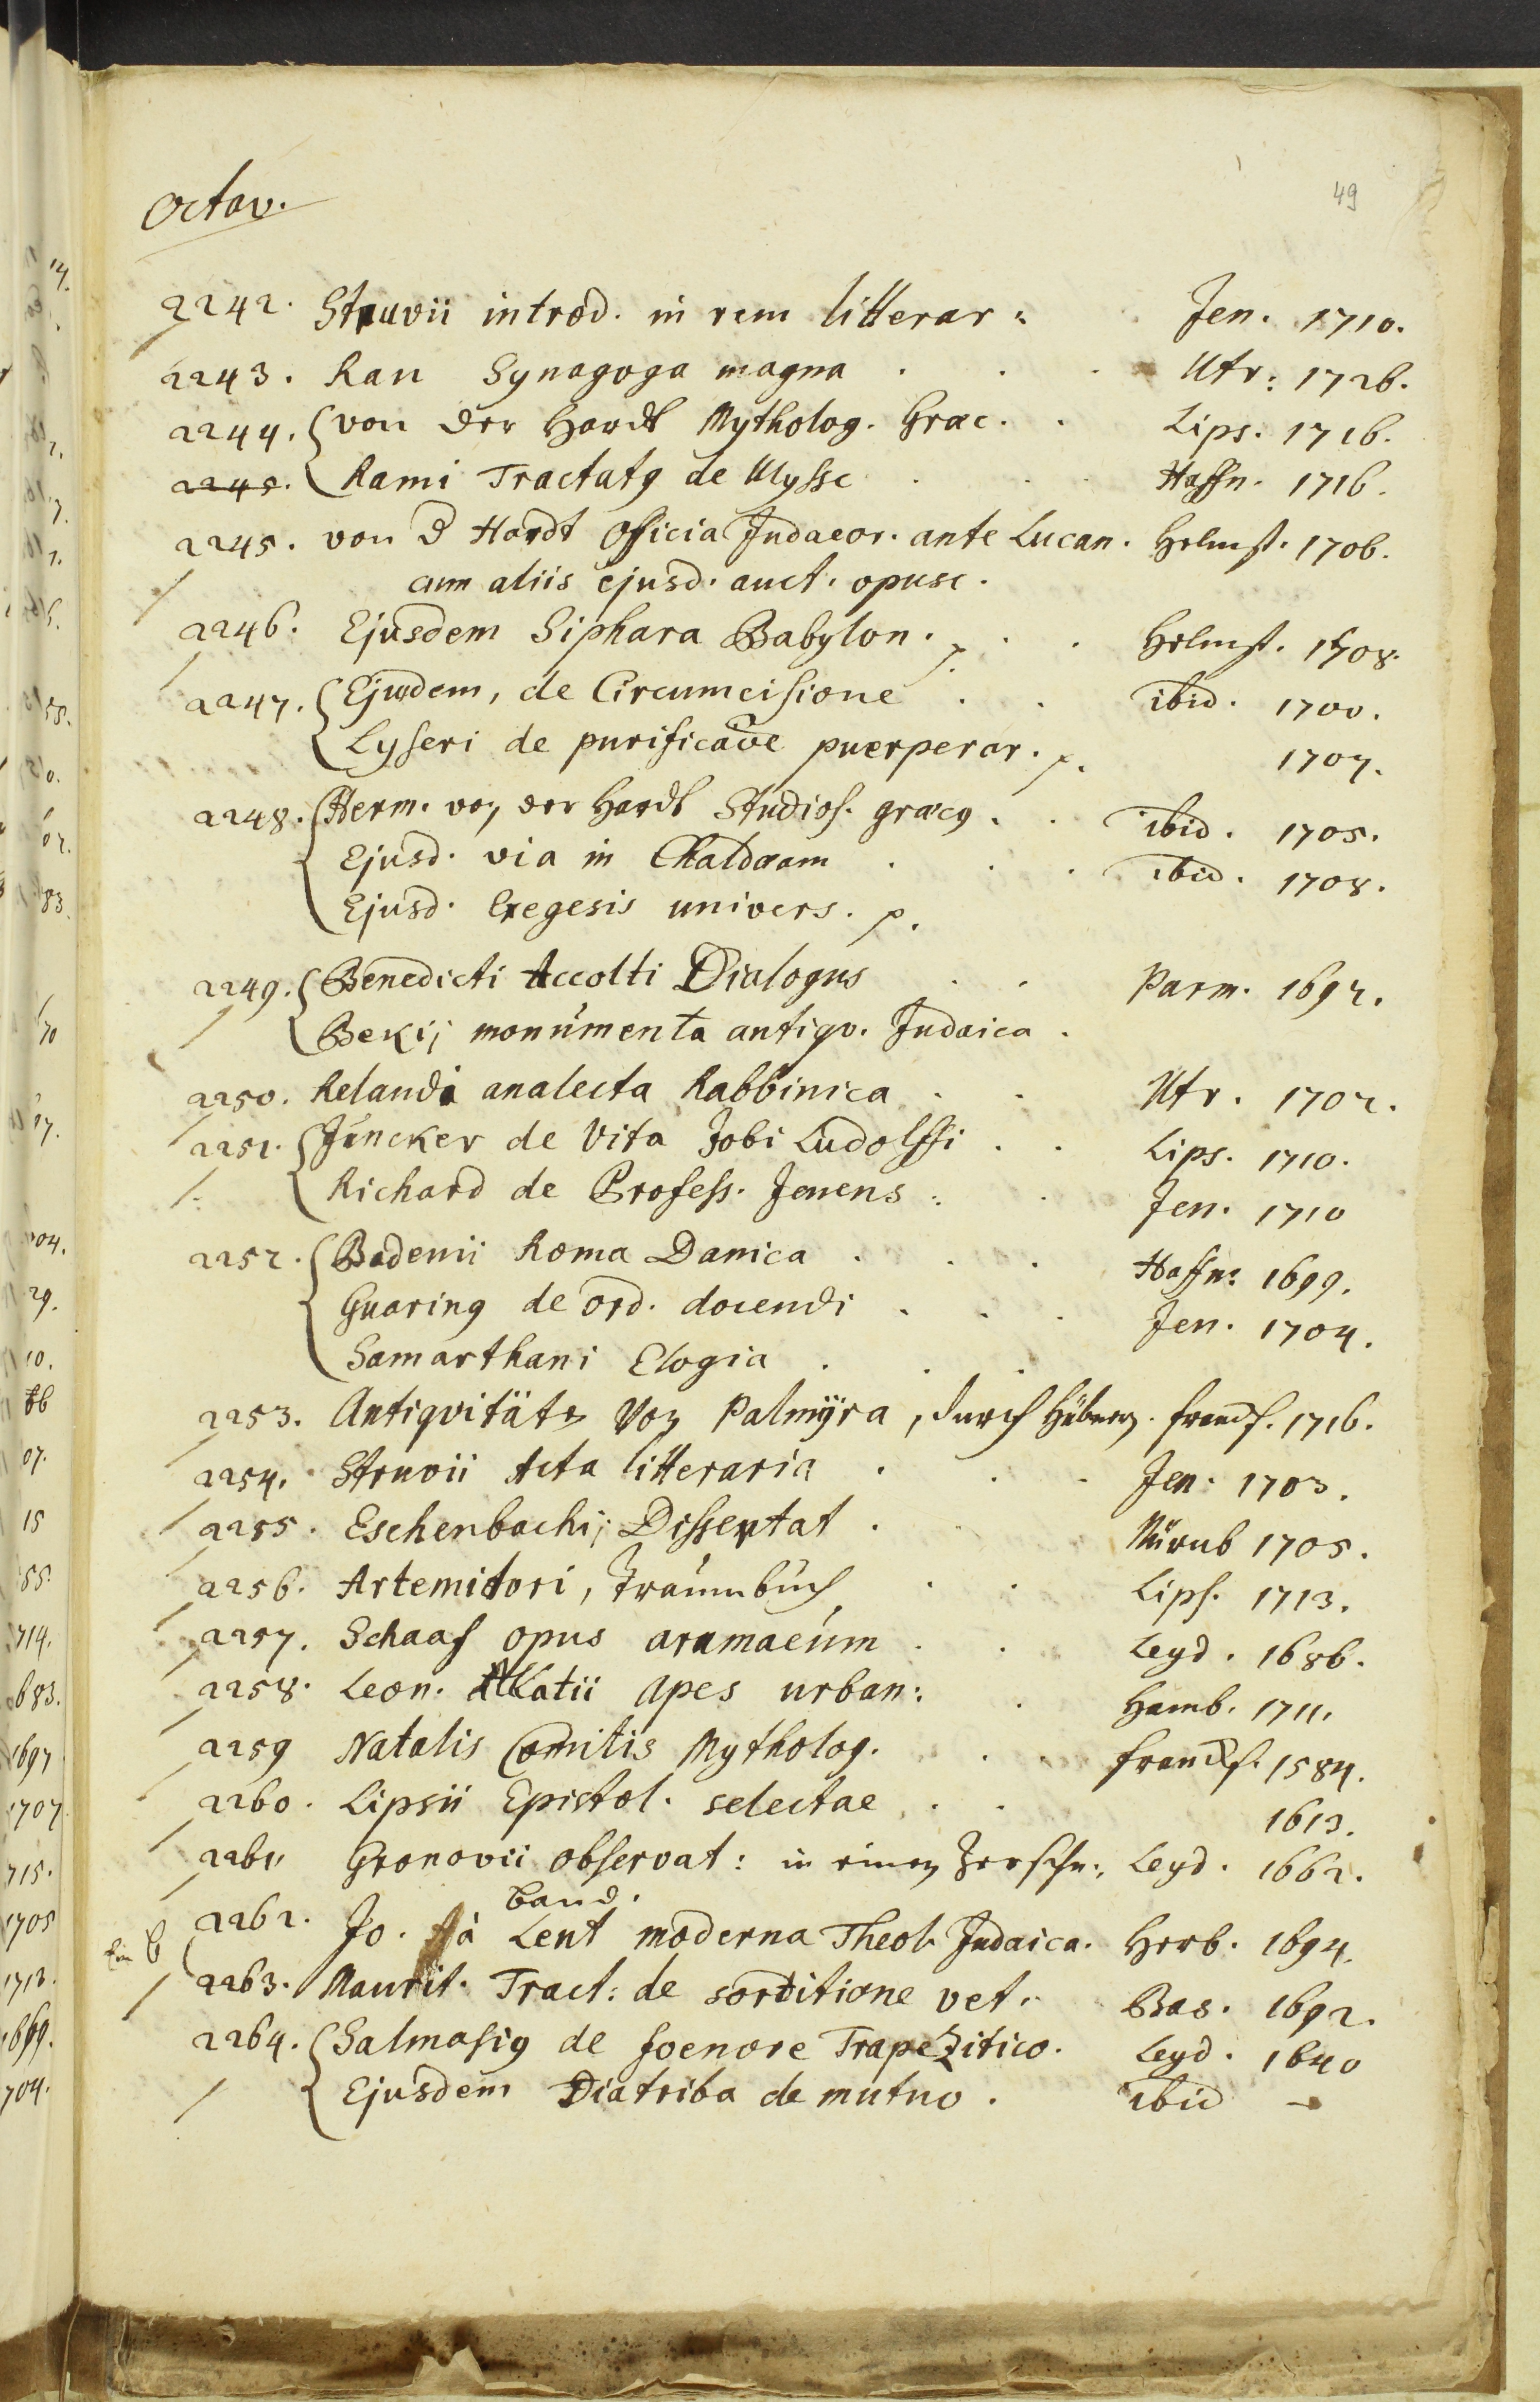 49
Octav.
2242. Struvii introd. in rem litterar: Jen. 1710.
2243. Rau Synagoga magna . . . Utr: 1726.
2244. von der Hardt Mytholog. Graec. . Lips. 1716.
2245. Rami Tractatg de Ulysse . . . Haffn. 1716.
2245. von d Hardt Officia Judaeor. ante Lucan. Helmst. 1706.
cum aliis ejusd. auct. opusc.
2246. Ejusdem Siphara Babylon. . . Helmst. 1708.
2247. Ejusdem, de Circumcisione . . ibid. 1700.
Lyseri de purificaõe puerperar. p. 1707.
2248. Herm. von der Hardt Studios. graecg . . ibid. 1705.
Ejusd. via in Chaldaeam . . . ibid. 1708.
Ejusd. Exegesis univers. p.
2249. Benedicti Accolti Dialogus . . Parm. 1692.
Bekij monumenta antiqv. Judaica .
2250. Relandi analecta Rabbinica . . Utr. 1702.
2251. Juncker de Vita Jobi Ludolffi . . Lips. 1710.
Richard de Profess. Jenens: . Jen. 1710
2252. Badenii Roma Danica . . . Haffn: 1699.
Guaring de ord. docendi . . . Jen. 1704.
Samarthani Elogia . . .
2253. Antiqvitäten von Palmÿra, durch Hübner. Franckf. 1716.
2254. Struvii Acta litteraria . . . Jen. 1703.
2255. Eschenbachij Dissertat . . Nürnb 1705.
2256. Artemidori, Traumbuch . . Lips. 1713.
2257. Schaaf opus aramaeum . . Leyd. 1686.
2258. Leon. Allatii Apes urban: . Hamb. 1711.
2259 Natalis Comitis Mytholog. . . Franckf. 1584.
2260. Lipsii Epistol. selectae . . 1613.
2261. Gronovii observat: in einem Frantzn: Leyd. 1662.
Band.
2262. Jo. à Lent moderna Theol. Judaica. Herb. 1694.
Ein B
2263. Maurit. Tract: de sortitione vet. Bas. 1692.
2264. Salmasig de foenore Trapezitico. Leyd. 1640
Ejusdem Diatriba de mutuo . ibid -